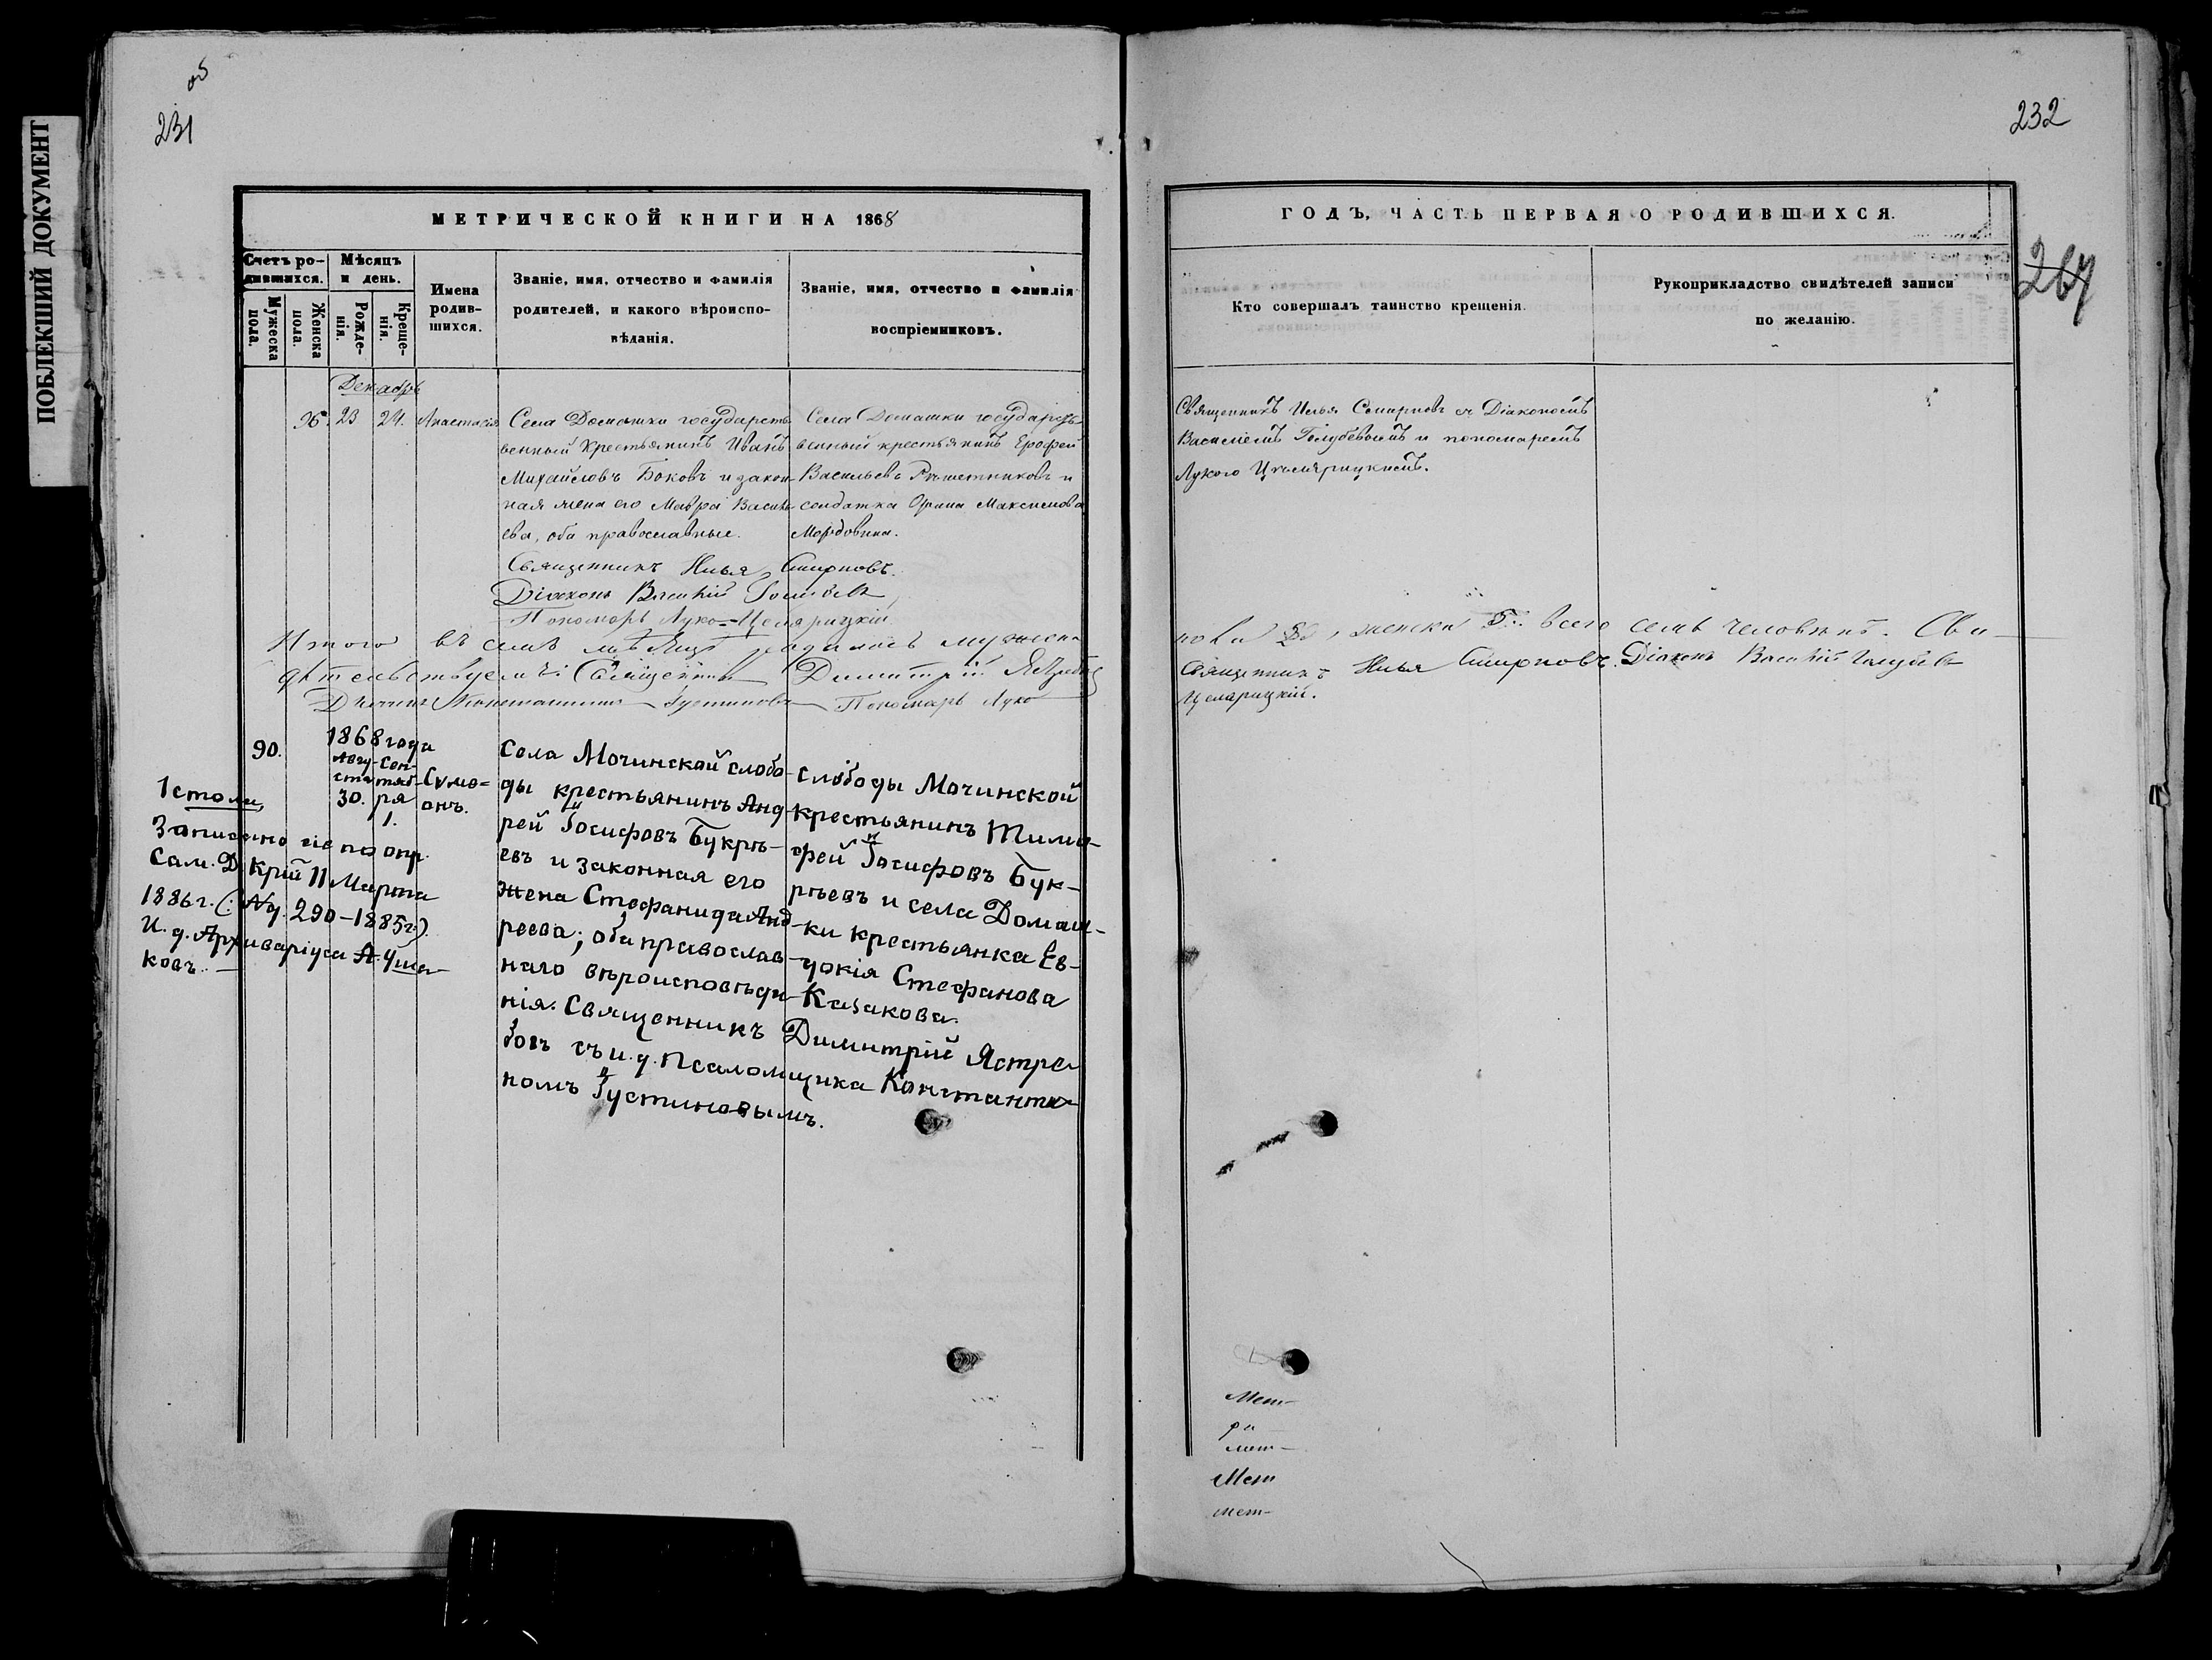 ПОБЛЕКШИЙ ДОКУМЕНТ
об
231
МЕТРИЧЕСКОЙ КНИГИ НА 1868
Счетъ ро-
дившихся.
Мужеска
пола.
Женска
пола.
Мѣсяцъ
и день.
Рожде-
нія.
Креще-
нія.
Имена
родив-
шихся.
Званіе, имя, отчество и фамилія
родителей, и какого вѣроиспо-
вѣданія.
Званіе, имя, отчество и фамилія
воспріемниковъ.
Декабрь
96. 23 24. Анастасія
Села Домашки государст-
венный Крестьянинъ Иванъ
Михайловъ Боковъ и закон-
ная жена его Мавра Василь-
ева, оба православные.
Села Домашки государст-
венный крестьянинъ Ерофей
Васильевъ Рѣшетниковъ и
солдатка Орина Максимова
Мордовина.
Священникъ Илья Смирновъ.
Діаконъ Василій Голубевъ
Пономарь Лука Цемарицкій
Итого въ семъ мѣсяцѣ родилось мужеска
дѣтельствуемъ: Священникъ Димитрій Ястребовъ
Дьячекъ Константинъ Іустиновъ Пономарь Лука
90.
1868 года
Авгу-
ста
30.
Сен-
тяб-
ря
1.
Сѵме-
онъ.
Села Мочинской слобо-
ды крестьянинъ Анд-
рей Іосифовъ Букрѣ-
евъ и законная его
жена Стефанида Анд-
реева; оба православ-
наго вѣроисповѣда-
нія. Священникъ Димитрій Ястре-
бовъ съ и. д. псаломщика Константи-
номъ Іустиновымъ.
слободы Мочинской
крестьянинъ Тимо-
фей Іосифовъ Бук-
рѣевъ и села Домаш-
ки крестьянка Ев-
докія Стефанова
Казакова.
1 стола,
Записано сіе по опр.
Сам. Д. Крій 11 Марта
1886 г. (: № 290-1885 г.)
И. д. Архиваріуса А. Уша-
ковъ.
232
264
ГОДЪ, ЧАСТЬ ПЕРВАЯ О РОДИВШИХСЯ.
Кто совершалъ таинство крещенія.
Рукоприкладство свидѣтелей записи
по желанію.
Священникъ Илья Смирновъ съ Діакономъ
Василіемъ Голубевымъ и пономаремъ
Лукою Цемарицкимъ.
пола, женска 5. всего семь человѣкъ. Сви-
Священникъ Илья Смирновъ. Діаконъ Василій Голубевъ
Цемарицкій.
Мет-
ри
мет-
Мет
мет-